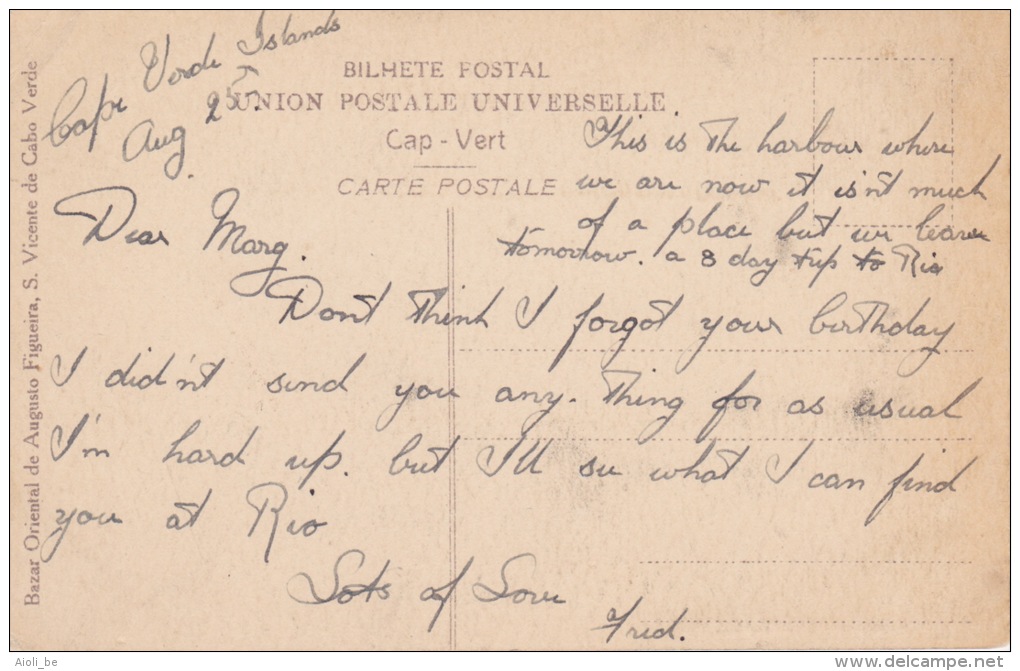 Cape Verde Islands
Aug 25T.
BILHETE POSTAL
UNION POSTALE UNIVERSELLE.
Cap - Vert
CARTE POSTALE
Bazar Oriental de Augusto Figueira, S. Vicente de Cabo Verde
This is the harbour where
we are now it isn't much
of a place but we leave
tomorrow. a 8 day trip to Rio
Dear Marg.
Don't think I forgot your birthday
I did'nt send you any. Thing for as usual
I'm hard up. but I'll see what I can find
you at Rio
Lots of Love
Fred.
Aioli_be
www.delcampe.net